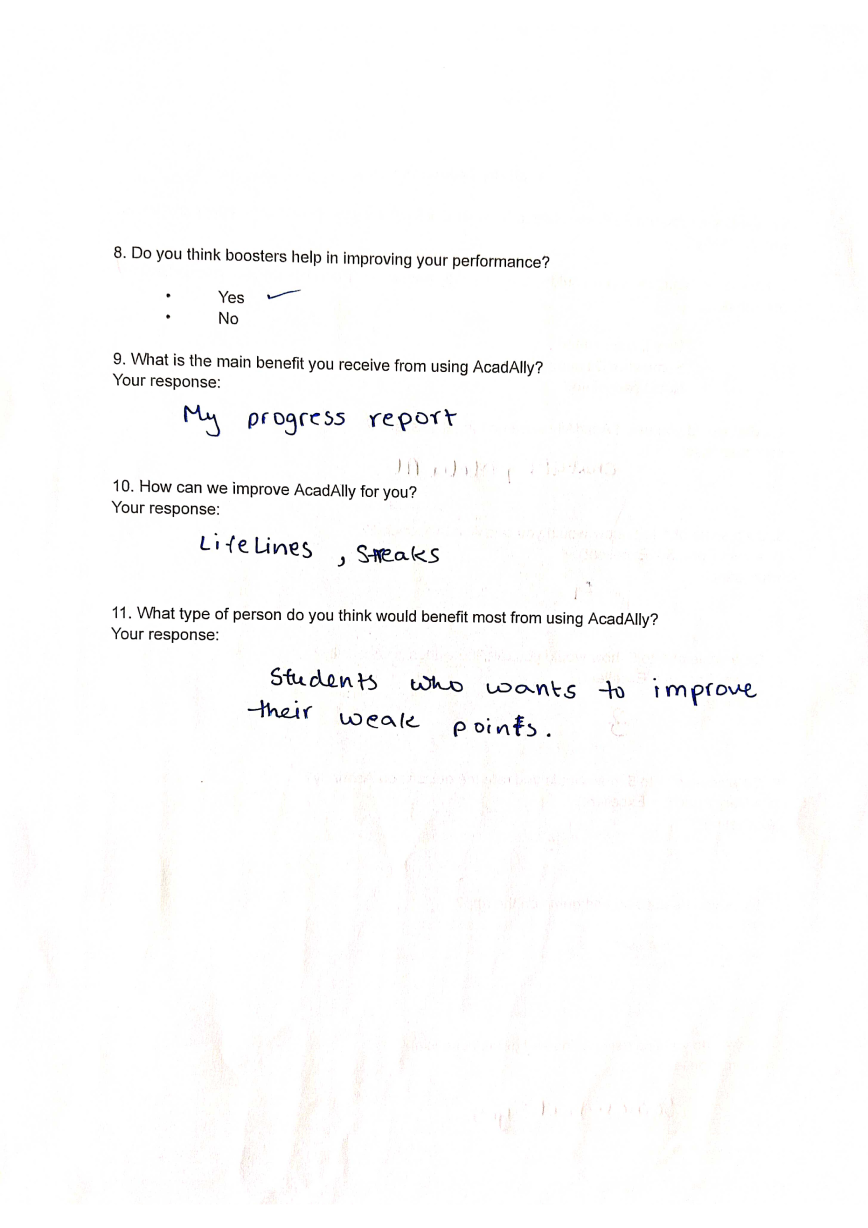 8. Do you think boosters help in improving your performance?
• Yes ✓
• No
9. What is the main benefit you receive from using AcadAlly?
Your response:
My progress report
10. How can we improve AcadAlly for you?
Your response:
LifeLines , Streaks
11. What type of person do you think would benefit most from using AcadAlly?
Your response:
Students who wants to improve
their weak points.